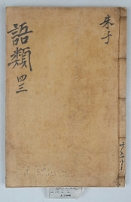 朱子
語類 四三